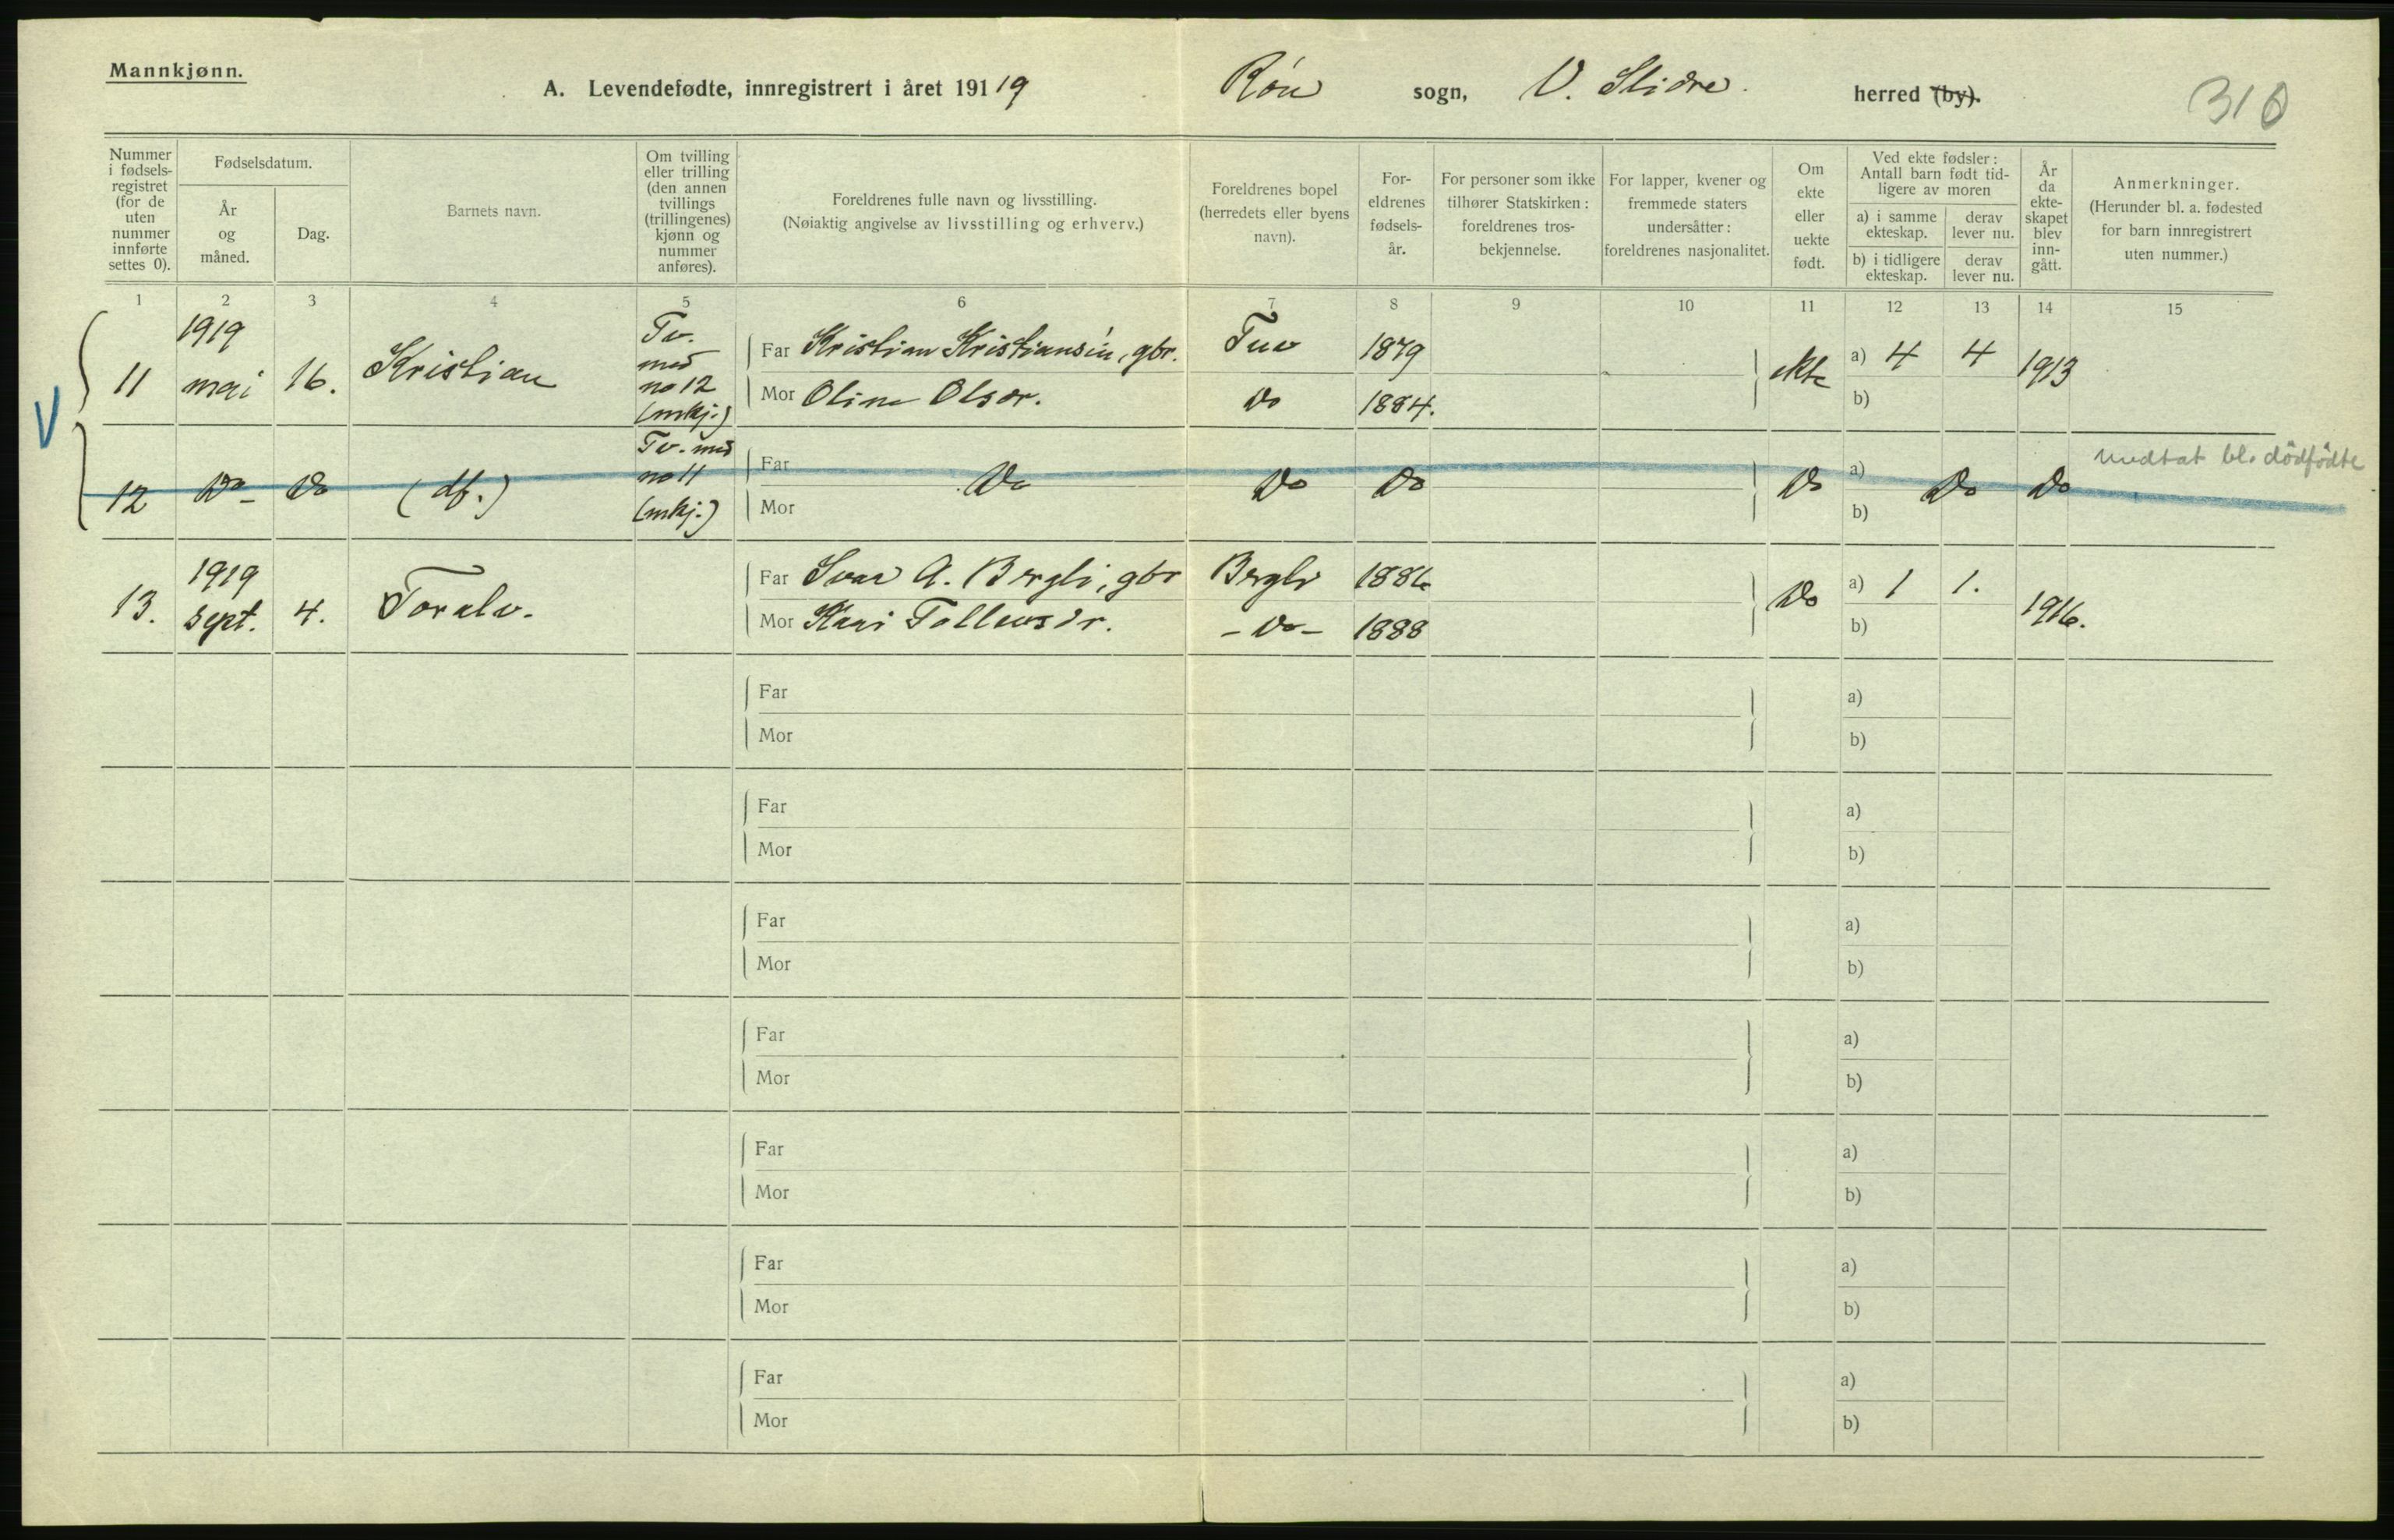 Mannkjønn.
A. Levendefødte, innregistrert i året 19119 Røn sogn, V. Slidre. herred (by). 310
Nummer i fødselsregistret (for de uten nummer innførte settes 0).
Fødselsdatum.
År og måned.
Dag.
Barnets navn.
Om tvilling eller trilling (den annen tvillings (trillingenes) kjønn og nummer anføres).
Foreldrenes fulle navn og livsstilling.
(Nøiaktig angivelse av livsstilling og erhverv.)
Foreldrenes bopel (herredets eller byens navn).
Foreldrenes fødselsår.
For personer som ikke tilhører Statskirken: foreldrenes trosbekjennelse.
For lapper, kvener og fremmede staters undersåtter: foreldrenes nasjonalitet.
Om ekte eller uekte født.
Ved ekte fødsler: Antall barn født tidligere av moren
a) i samme ekteskap.
derav lever nu.
b) i tidligere ekteskap.
derav lever nu.
År da ekteskapet blev inngått.
Anmerkninger.
(Herunder bl. a. fødested for barn innregistrert uten nummer.)
1 2 3 4 5 6 7 8 9 10 11 12 13 14 15
11 1919 mai 16. Kristian Tv. med no 12 (mkj.)
Far Kristian Kristiansen, gbr. Tuv 1879
Mor Oline Olsdr. Do 1884.
ekte a) 4 4 1913
b)
V
12 Do- Do (df.) Tv. med no 11 (mkj.)
Far Do Do Do Do a) Do Do medtat bl. dödfödte
Mor b)
13. 1919 sept. 4. Toralv.
Far Ivar A. Bergli, gbr Bergli 1886
Mor Kari Tollevsdr. -Do- 1888
Do a) 1 1. 1916.
b)
Far a)
Mor b)
Far a)
Mor b)
Far a)
Mor b)
Far a)
Mor b)
Far a)
Mor b)
Far a)
Mor b)
Far a)
Mor b)